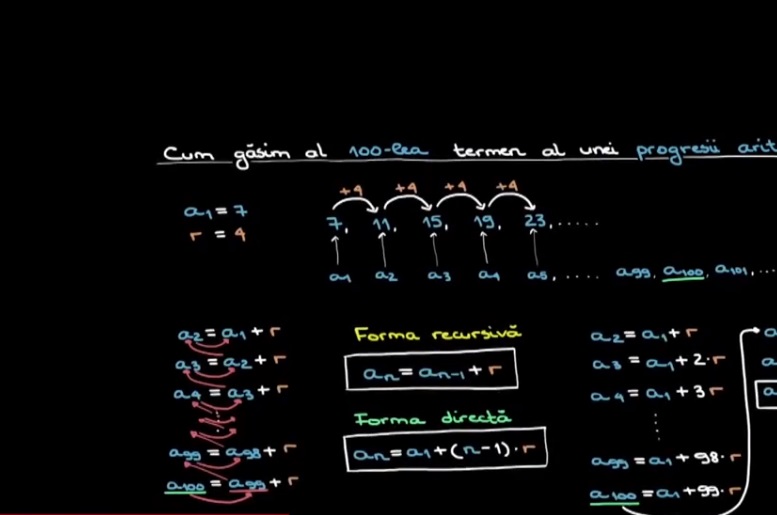 Cum găsim al 100-lea termen al unei progresii arit
+4 +4 +4 +4
a1 = 7
r = 4
7, 11, 15, 19, 23, .....
a1 a2 a3 a4 a5, .... a99, a100, a101, ...
a2 = a1 + r
a3 = a2 + r
a4 = a3 + r
⋮
a99 = a98 + r
a100 = a99 + r
Forma recursivă
an = an-1 + r
Forma directă
an = a1 + (n-1) · r
a2 = a1 + r
a3 = a1 + 2 · r
a4 = a1 + 3 r
⋮
a99 = a1 + 98 · r
a100 = a1 + 99 · r
a
a
a